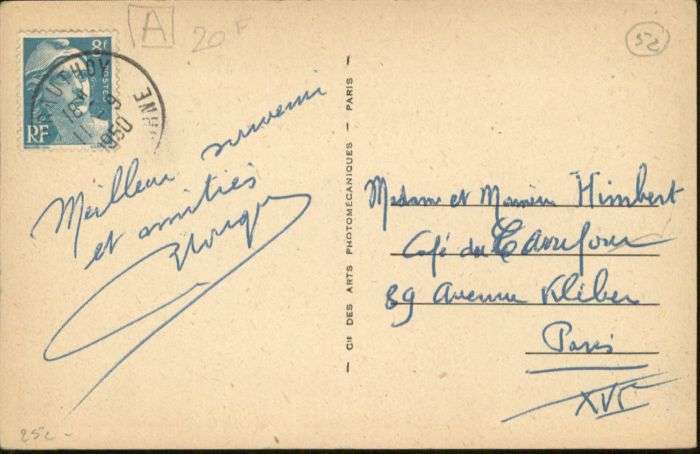 A
20F
52
8f
POSTES
RF
PRAUTHOY
18 -
11-9
1950
Meilleur souvenir
et amitiés
Cie DES ARTS PHOTOMÉCANIQUES - PARIS
Madame et Monsieur Himbert
Café du Carrefour
89 Avenue Kléber
Paris
XVIe
25c-